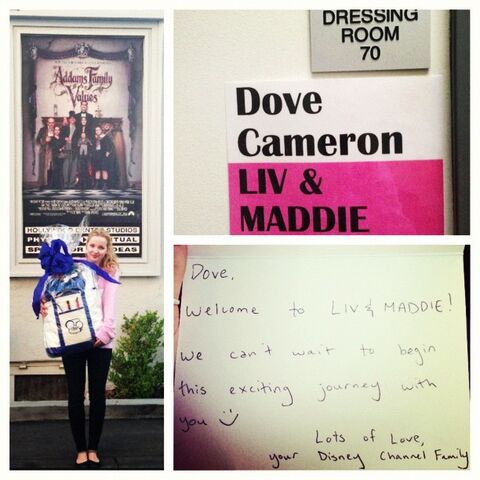 Addams Family
Values
HOLLYWOOD CENTER STUDIOS
DRESSING
ROOM
70
Dove
Cameron
LIV &
MADDIE
Dove,
Welcome to LIV & MADDIE!
We can't wait to begin
this exciting journey with
you
Lots of Love,
your Disney Channel Family